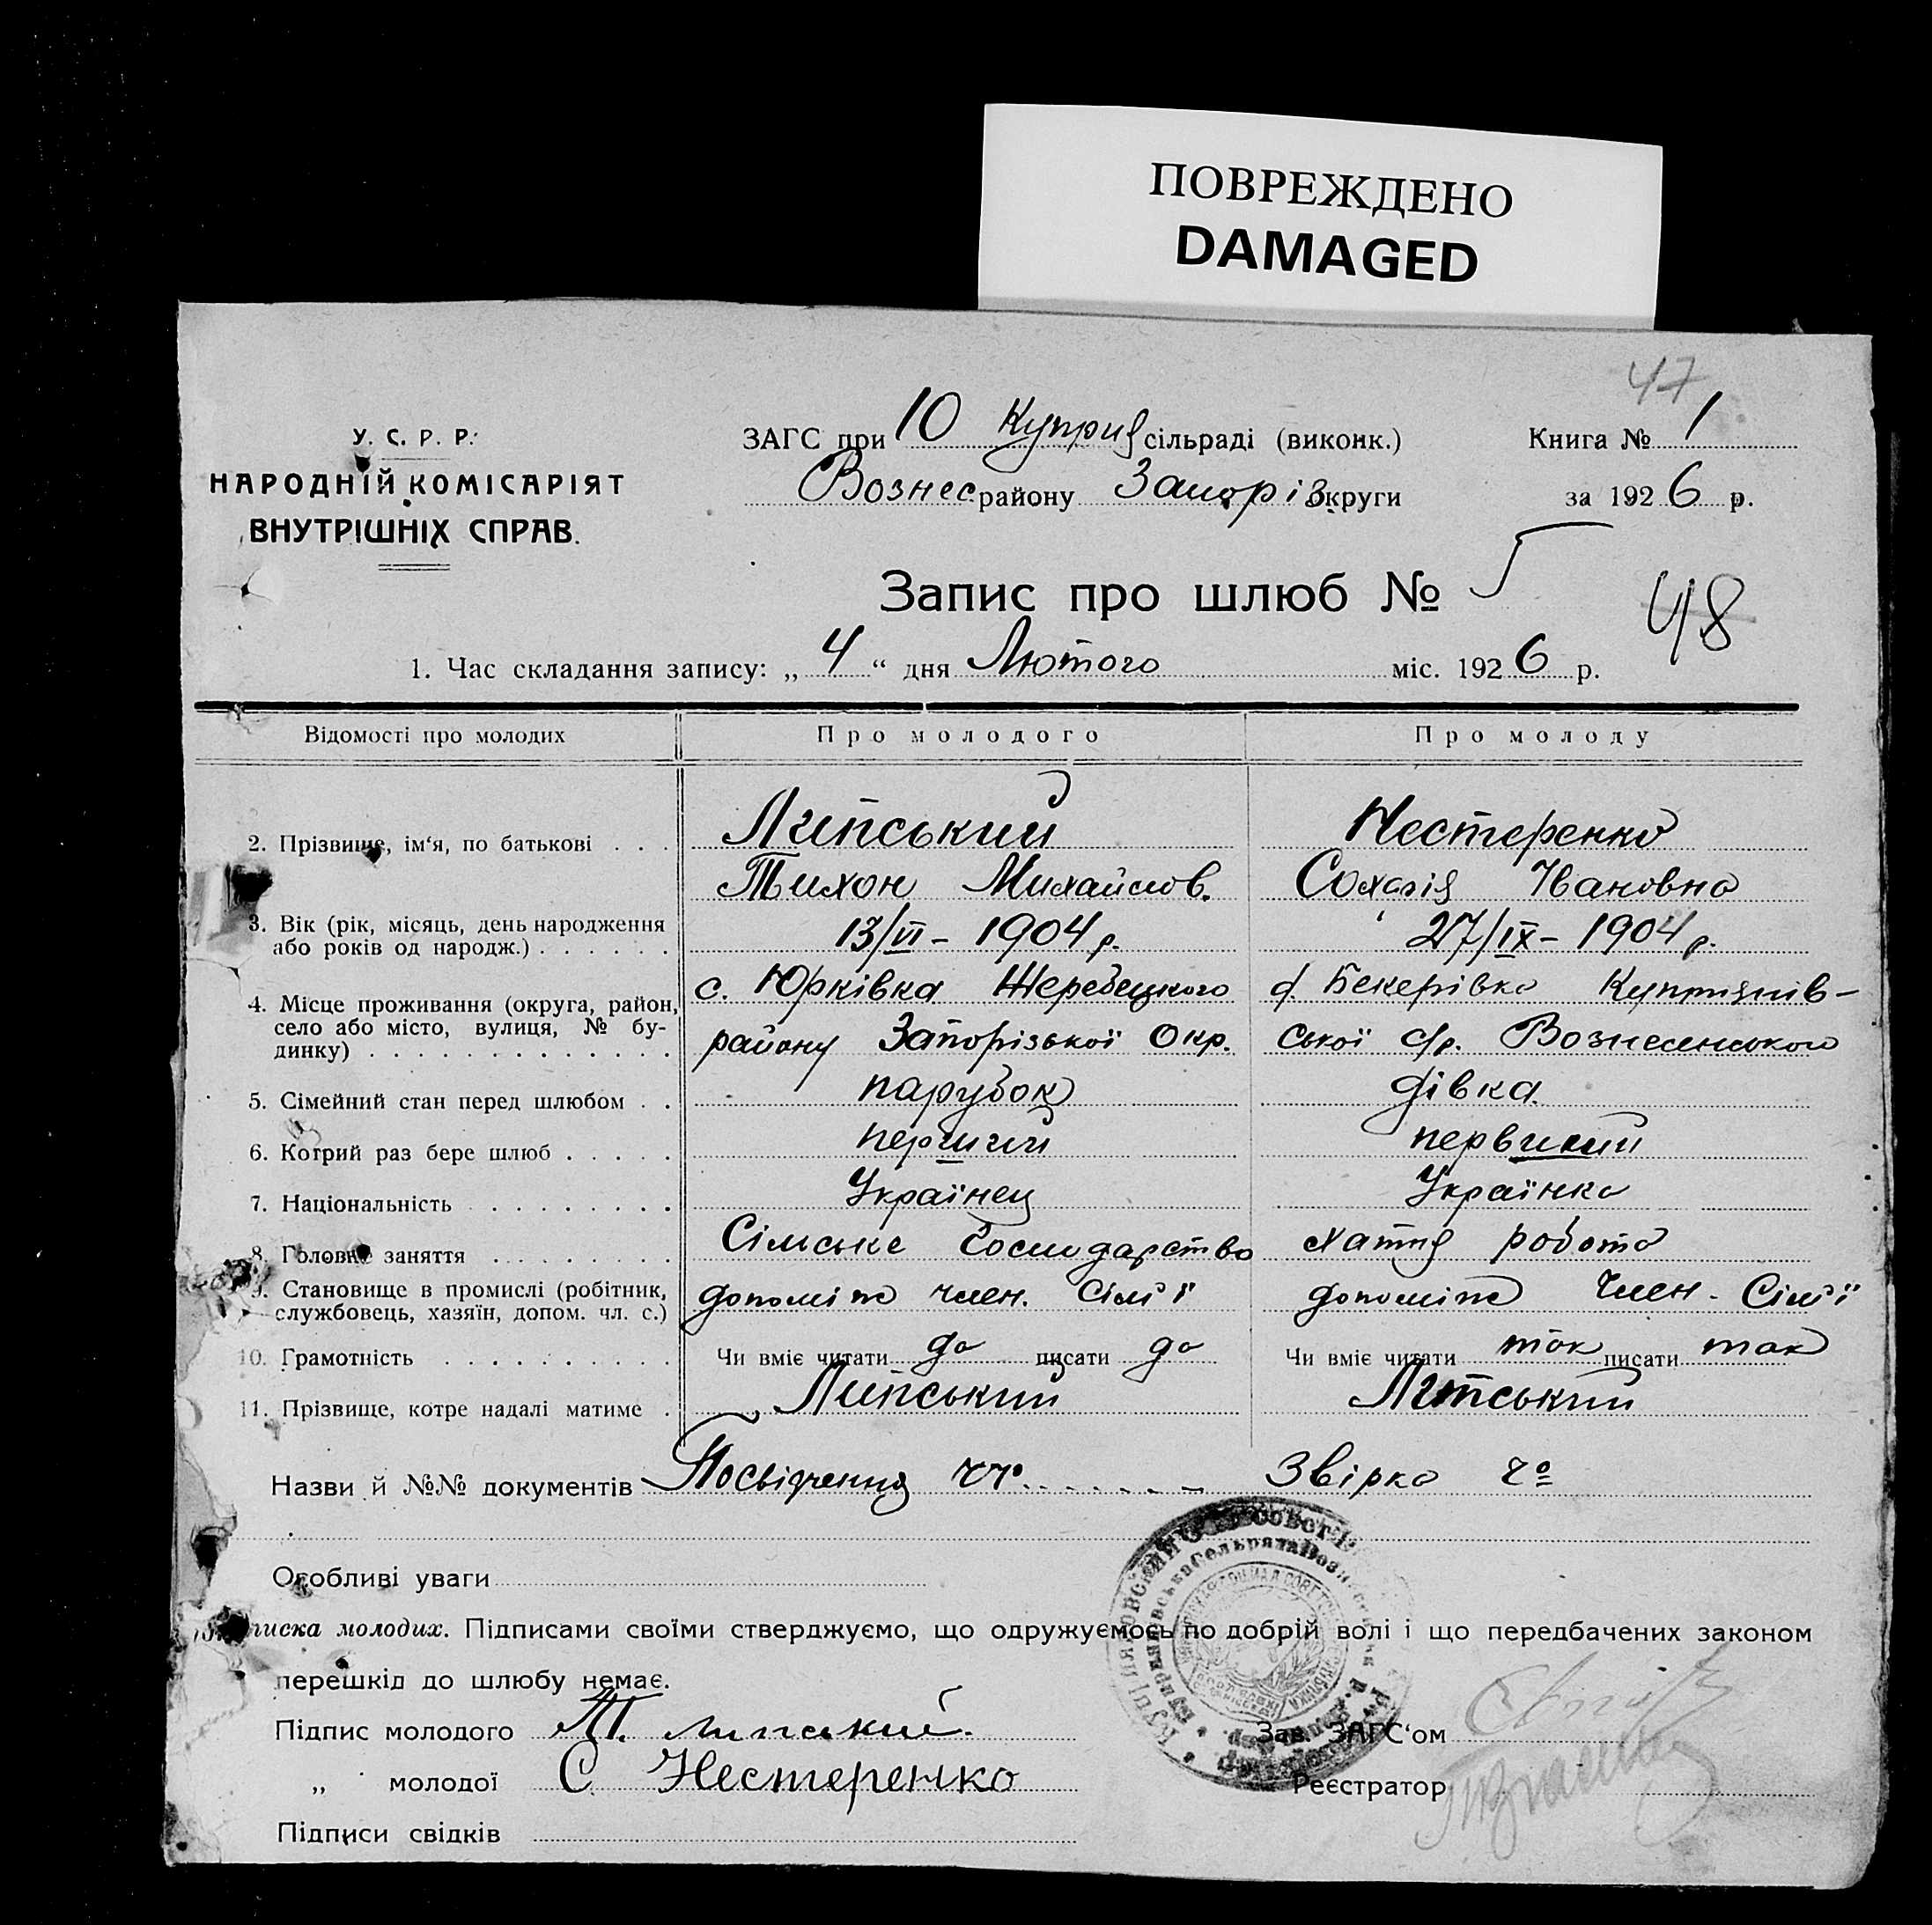 ПОВРЕЖДЕНО
DAMAGED
47
У. С. Р. Р.
НАРОДНІЙ КОМІСАРІЯТ
ВНУТРІШНІХ СПРАВ.
ЗАГС при 10 Куприя сільраді (виконк.)
Книга № 1
Вознес. району Запоріз округи
за 1926 р.
Запис про шлюб № 5
48
1. Час складання запису: „ 4 “ дня Лютого міс. 1926 р.
Відомості про молодих
Про молодого
Про молоду
2. Прізвище, ім‘я, по батькові . . .
Липський
Тихон Михайлов.
Нестеренко
Івановна
3. Вік (рік, місяць, день народження
або років од народж.) . . . . . .
13/VI – 1904 р.
27/IX – 1904 р.
4. Місце проживання (округа, район,
село або місто, вулиця, № бу-
динку) . . . . . . . . . . . . .
с. Юрківка Жеребецького
району Запорізької Окр.
Бекерівка Куприянів–
ської с/р. Вознесенського
5. Сімейний стан перед шлюбом . .
парубок
дівка.
6. Котрий раз бере шлюб . . . . .
перший
7. Національність . . . . . . . .
Українец
Українка
8. Головне заняття . . . . . . . .
Сільське Господарство
хатня робота
9. Становище в промислі (робітник,
службовець, хазяїн, допом. чл. с.)
член. Сім'ї
Член. Сім'ї
10. Грамотність . . . . . . . . . .
Чи вміє читати да писати да
Чи вміє читати так писати так
11. Прізвище, котре надалі матиме .
Липський
Липський
Назви й №№ документів Посвідчення
Звірка
Особливі уваги
писка молодих. Підписами своїми стверджуємо, що одружуємось по добрій волі і що передбачених законом
перешкід до шлюбу немає.
Підпис молодого Т. Липський.
„ молодої С Нестеренко
Підписи свідків
Зав. ЗАГС‘ом
Реєстратор